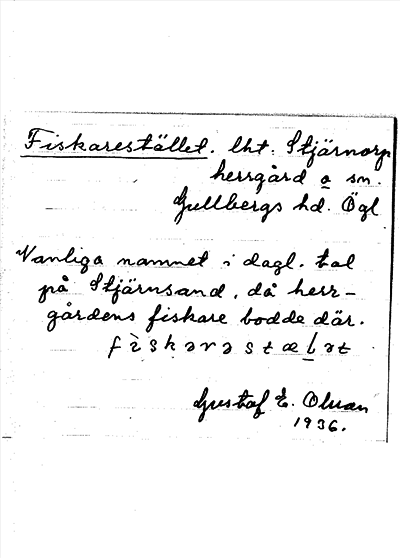 Fiskarestället. lht. Stjärnorp
herrgård o sn.
Gullbergs hd. Ögl
Vanliga namnet i dagl. tal
på Stjärnsand, då herr-
gårdens fiskare bodde där.
fìskərəstælət
Gustaf E. Olsson
1936.